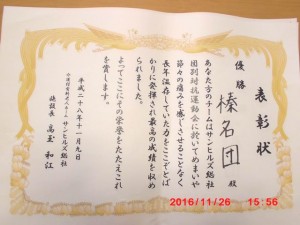 表彰状
優勝
榛名団 殿
あなた方のチームはサンヒルズ総社
団別対抗運動会に於いてめまいや
節々の痛みを感じさせることなく
長年温存していた力をここぞとば
かりに発揮され最高の成績を収め
られました
よってここにその栄誉をたたえこれ
を賞します。
平成二十八年十一月九日
サンヒルズ総社
施設長 高玉 和江
2016/11/26 15:56